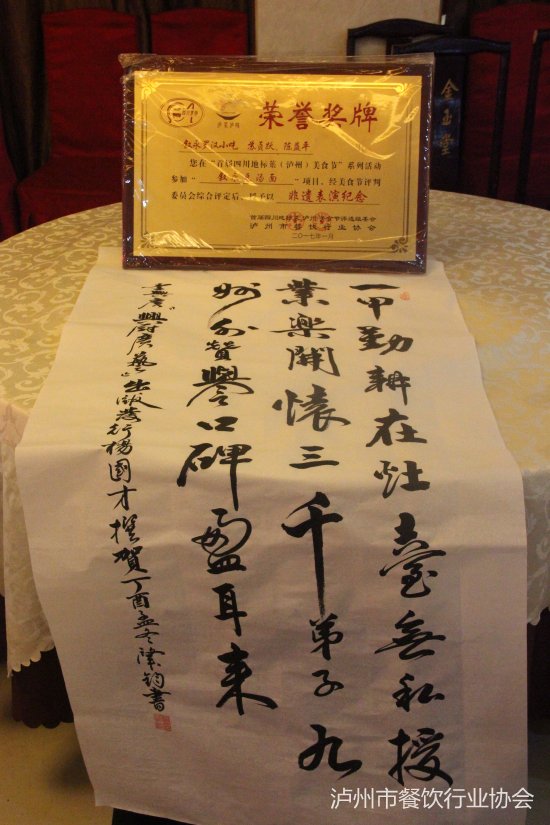 荣誉奖牌
叙永罗汉小吃 陈益平
您在“首届四川地标菜（泸州）美食节”系列活动
参加“叙永豆汤面”项目，经美食节评判
委员会综合评定后，予以 非遗表演纪念
首届四川地标菜 泸州美食节评选组委会
泸州市餐饮行业协会
二〇一七年一月
金玉堂
一甲勤耕在灶臺無私授
業樂開懷三千弟子九
州 贊譽口碑盈耳来
興厨 藝 出版發行楊國才撰賀丁酉孟冬 鈞書
泸州市餐饮行业协会